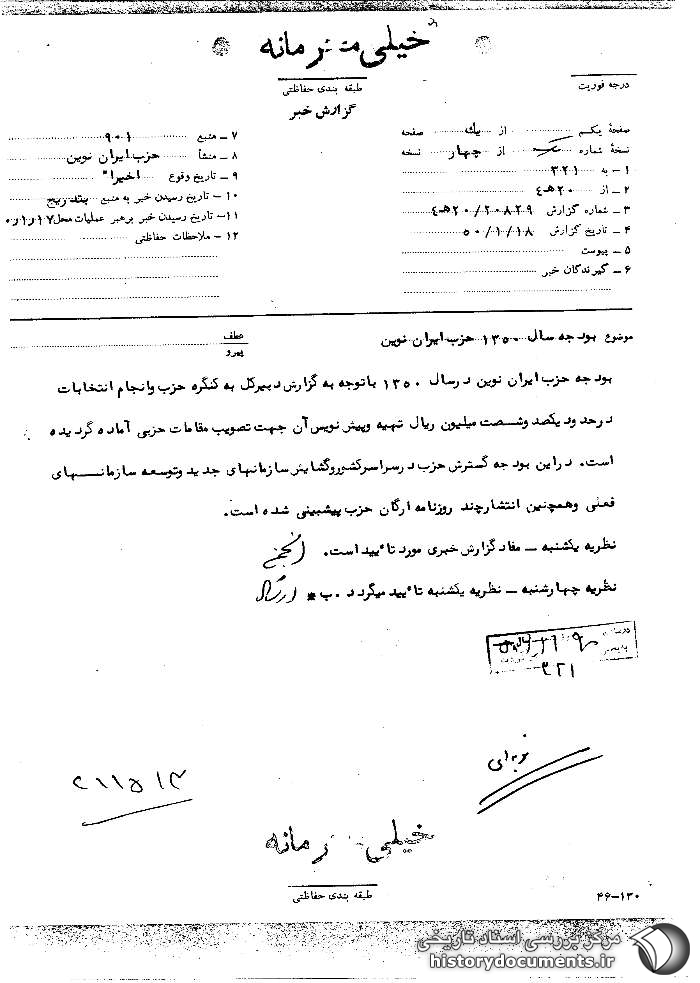 خیلی محرمانه
طبقه بندی حفاظتی
گزارش خبر
درجه فوریت
صفحهٔ یکم از یك صفحه
نسخهٔ شماره یک از چهار نسخه
۱ – به ۳۲۱
۲ – از ۲۰هـ۴
۳ – شماره گزارش ۲۰/۲۰۸۲۹هـ۴
۴ – تاریخ گزارش ۵۰/۱/۱۸
۵ – پیوست
۶ – گیرندگان خبر
۷ – منبع ۹۰۱
۸ – منشأ حزب ایران نوین
۹ – تاریخ وقوع اخیرا"
۱۰ – تاریخ رسیدن خبر به منبع بتدریج
۱۱– تاریخ رسیدن خبر برهبر عملیات محل ۱۷ر۱ر۵۰
۱۲ – ملاحظات حفاظتی
موضوع بودجه سال ۱۳۵۰ حزب ایران نوین
عطف
پیرو
بودجه حزب ایران نوین درسال ۱۳۵۰ باتوجه به گزارش دبیرکل به کنگره حزب وانجام انتخابات
درحدود یکصد وشصت میلیون ریال تهیه وپیش نویس آن جهت تصویب مقامات حزبی آماده گردیده
است. دراین بودجه گسترش حزب درسراسرکشور وگشایش سازمانهای جدید وتوسعه سازمانـــهای
فعلی وهمچنین انتشارچند روزنامه ارگان حزب پیشبینی شده است.
نظریه یکشنبه – مفاد گزارش خبری مورد تأیید است.
نظریه چهارشنبه – نظریه یکشنبه تأیید میگردد. ب*
۳۲۱
نوبه‌ای
۲۱۱۵۱۳
خیلی محرمانه
طبقه بندی حفاظتی
۴۶–۱۳۰
مرکز بررسی اسناد تاریخی
historydocuments.ir